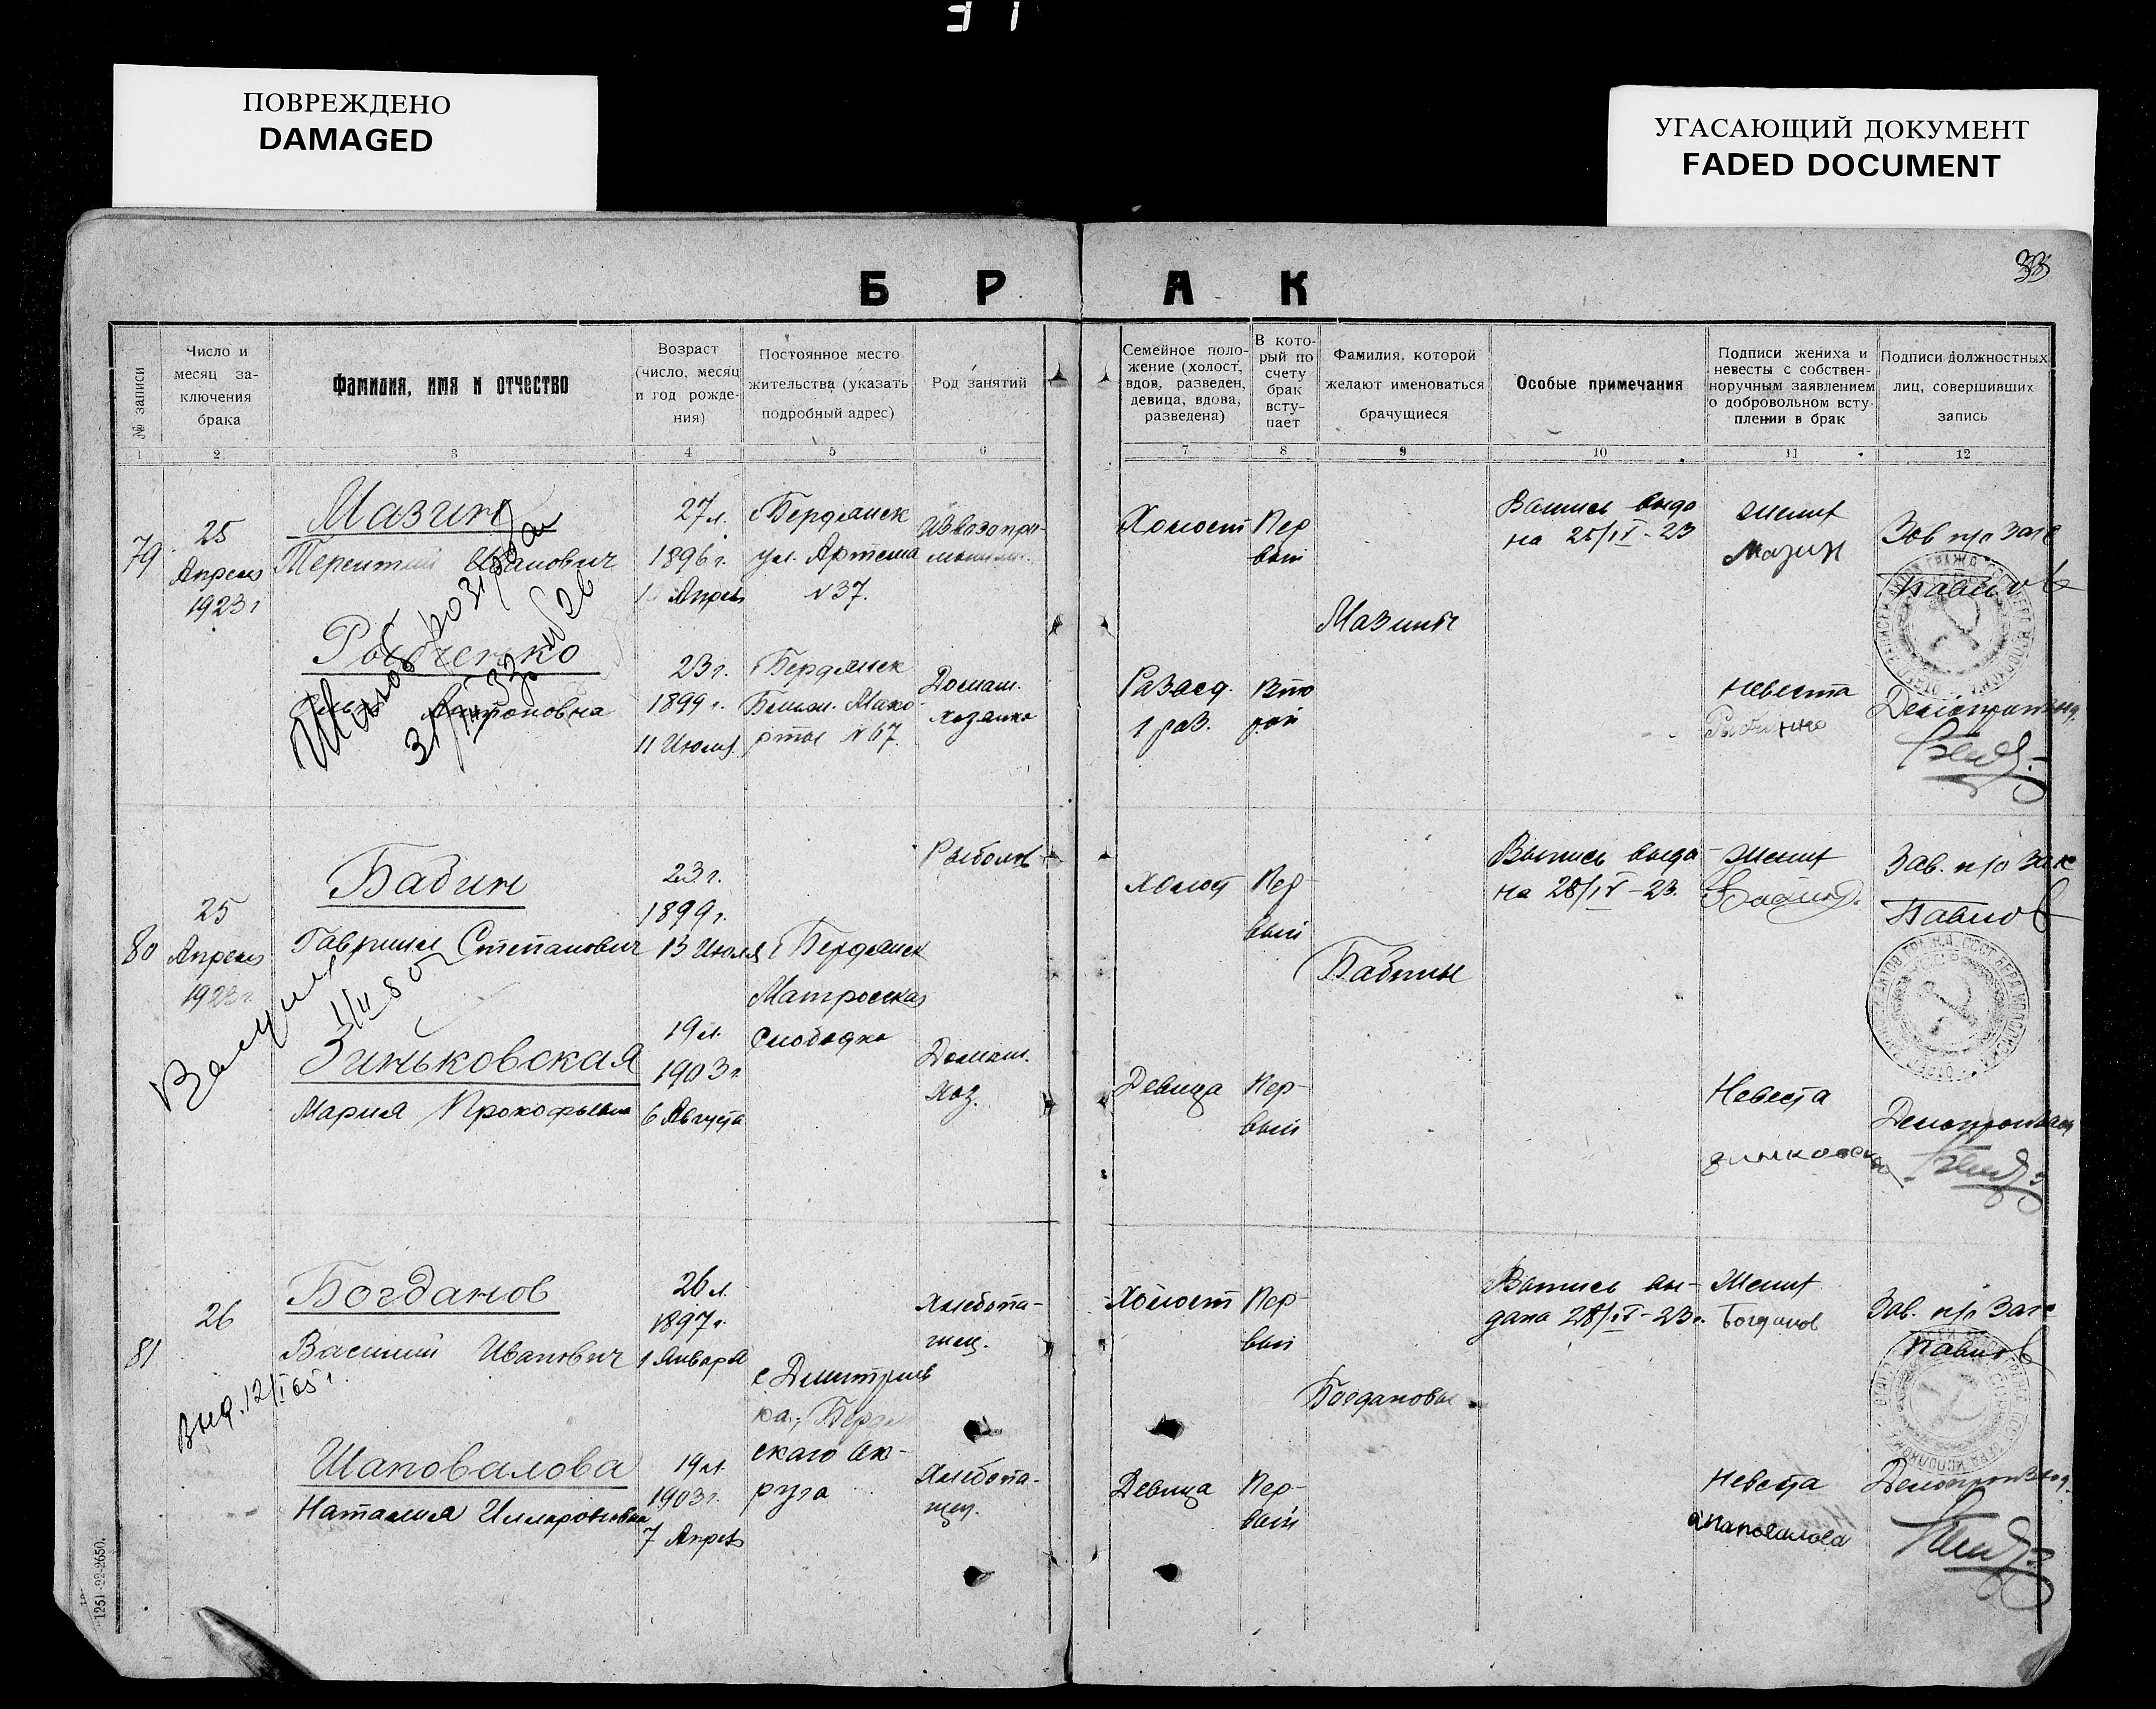 31
ПОВРЕЖДЕНО
DAMAGED
УГАСАЮЩИЙ ДОКУМЕНТ
FADED DOCUMENT
33
БРАК
№ записи
Число и
месяц за-
ключения
брака
Фамилия, имя и отчество
Возраст
(число, месяц
и год рожде-
ния)
Постоянное место
жительства (указать
подробный адрес)
Род занятий
Семейное поло-
жение (холост,
вдов, разведен,
девица, вдова,
разведена)
В кото-
рый по
счету
брак
всту-
пает
Фамилия, которой
желают именоваться
брачущиеся
Особые примечания
Подписи жениха и
невесты с собствен-
норучным заявлением
о добровольном всту-
плении в брак
Подписи должностных
лиц, совершивших
запись
1 2 3 4 5 6 7 8 9 10 11 12
79
25
Апреля
1923 г
Мазин
Терентий Иванович
27 л.
1896 г.
1 Апрель
г Бердянск
ул. Артема
№ 37.
Холост
Пер
вый
Выпись выда
на 25/IV-23
Жених
Мазин
Зав п/о Загс
Павлов
Рыбченко
Антоновна
23 г.
1899 г.
11 Июля
Бердянск
№ 67.
Домаш.
хозяйка
Мазины
Развед.
1 раз.
Вто
рой
Невеста
Делопроизвод.
80
25
Апреля
1923 г.
Бабин
Гавриил Степанович
23 г.
1899 г.
13 Июля
г Бердянск
Матросская
Слободка
Рыболов
Холост
Пер
вый
Бабины
Выпись выда
на 28/IV-23.
Жених
Зав. п/о Загс
Павлов
Зиньковская
Мария Прокофьевна
19 л.
1903 г
6 Августа
Домаш.
хоз.
Девица
Пер-
вый
Невеста
Зинковская
Делопроизвод
81
26
Богданов
Василий Иванович
Выд. 12/I 65 г.
26 л.
1897 г.
1 Января
с Дмитриев
ка, Бердян
скаго Ок-
руга
Хлебопа-
шец.
Холост
Пер-
вый
Богдановы
Выпись вы-
дана 28/IV-23 г.
Жених
Богданов
Зав. п/о Загс
Павлов
Шаповалова
Наталия Илларионовна
19 л.
1903 г.
7 Апрель
Хлебопа-
шец.
Девица
Пер-
вый
Невеста
Шаповалова
Делопроизвод.
1251-22-2650.